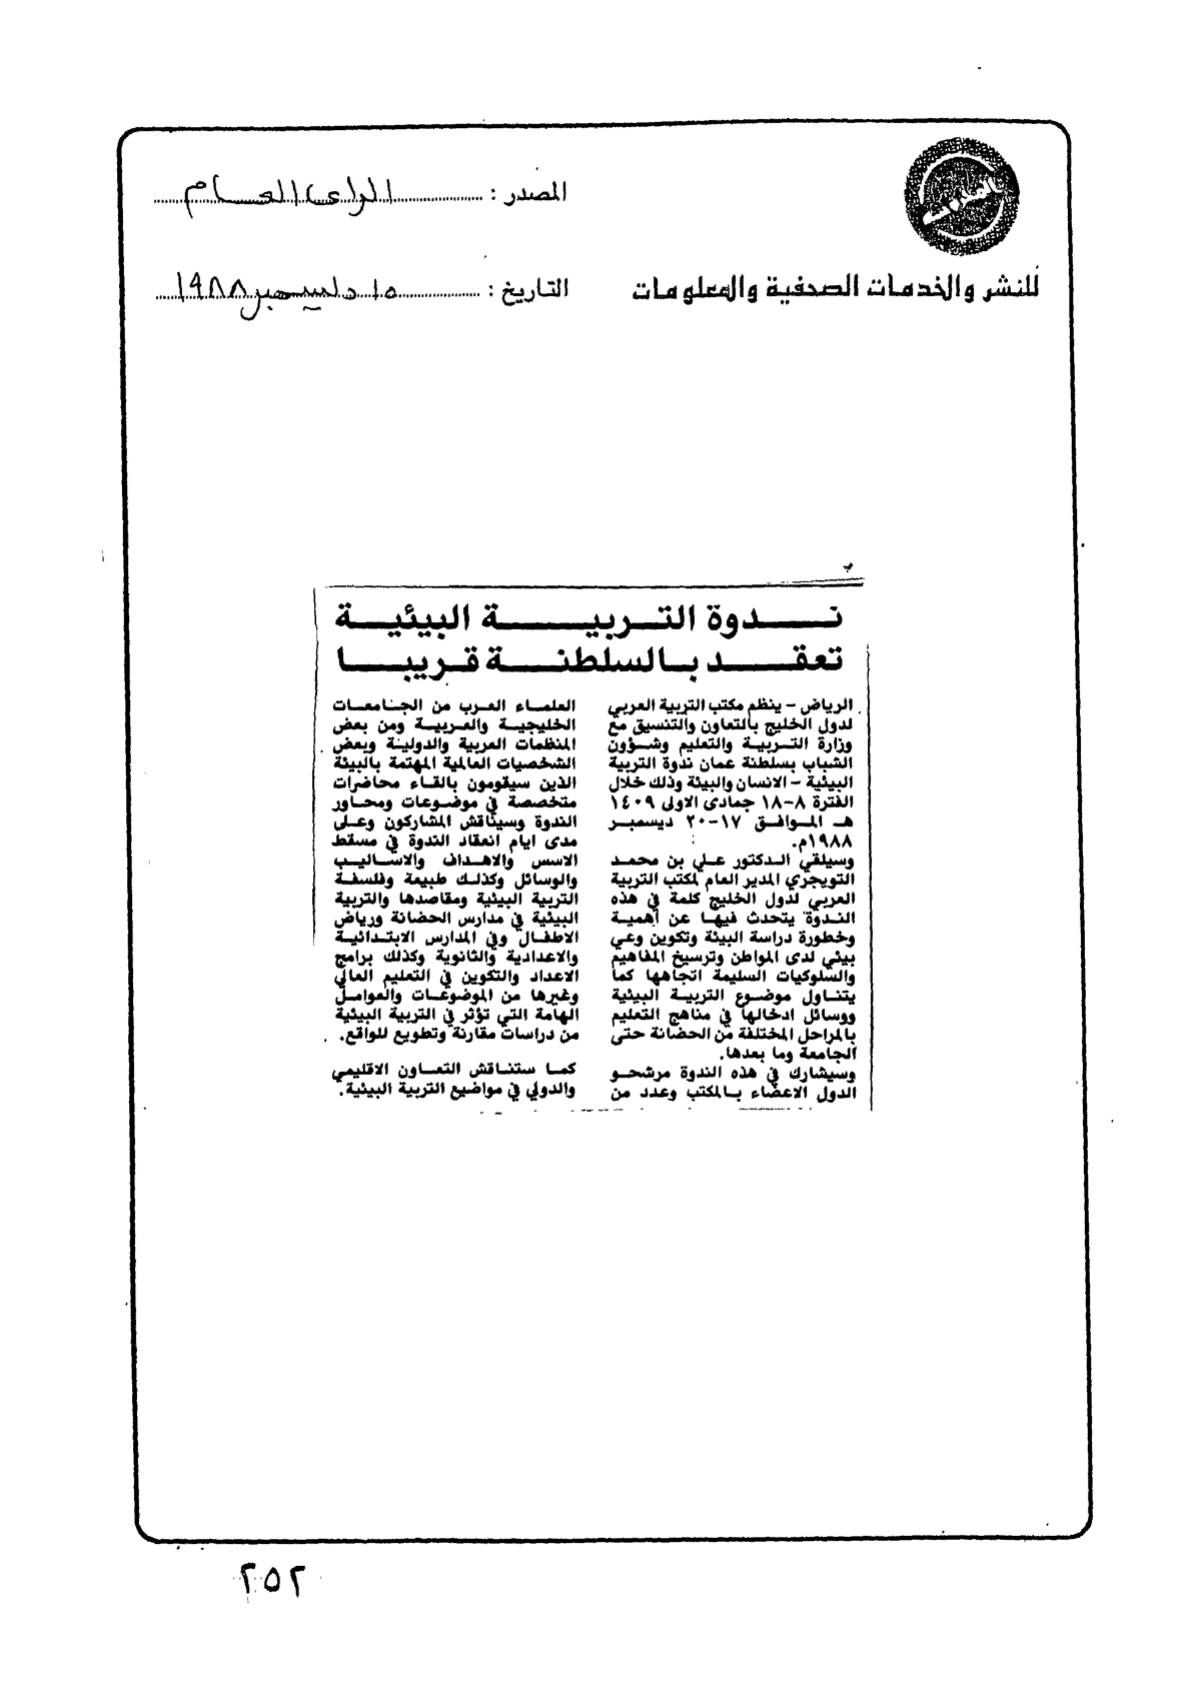 المصدر : الراى العام
للنشر والخدمات الصحفية والمعلومات
التاريخ : ١٥ ديسمبر ١٩٨٨
ندوة التربية البيئية
تعقد بالسلطنة قريبا
الرياض - ينظم مكتب التربية العربي
لدول الخليج بالتعاون والتنسيق مع
وزارة التربية والتعليم وشؤون
الشباب بسلطنة عمان ندوة التربية
البيئية - الانسان والبيئة وذلك خلال
الفترة ٨-١٨ جمادى الاولى ١٤٠٩
هـ الموافق ١٧-٢٠ ديسمبر
١٩٨٨م.
وسيلقي الدكتور علي بن محمد
التويجري المدير العام لمكتب التربية
العربي لدول الخليج كلمة في هذه
الندوة يتحدث فيها عن أهمية
وخطورة دراسة البيئة وتكوين وعي
بيئي لدى المواطن وترسيخ المفاهيم
والسلوكيات السليمة اتجاهها كما
يتناول موضوع التربية البيئية
ووسائل ادخالها في مناهج التعليم
بالمراحل المختلفة من الحضانة حتى
الجامعة وما بعدها.
وسيشارك في هذه الندوة مرشحو
الدول الاعضاء بالمكتب وعدد من
العلماء العرب من الجامعات
الخليجية والعربية ومن بعض
المنظمات العربية والدولية وبعض
الشخصيات العالمية المهتمة بالبيئة
الذين سيقومون بالقاء محاضرات
متخصصة في موضوعات ومحاور
الندوة وسيناقش المشاركون وعلى
مدى ايام انعقاد الندوة في مسقط
الاسس والاهداف والاساليب
والوسائل وكذلك طبيعة وفلسفة
التربية البيئية ومقاصدها والتربية
البيئية في مدارس الحضانة ورياض
الاطفال وفي المدارس الابتدائية
والاعدادية والثانوية وكذلك برامج
الاعداد والتكوين في التعليم العالي
وغيرها من الموضوعات والعوامل
الهامة التي تؤثر في التربية البيئية
من دراسات مقارنة وتطويع للواقع.
كما ستناقش التعاون الاقليمي
والدولي في مواضيع التربية البيئية.
٢٥٢